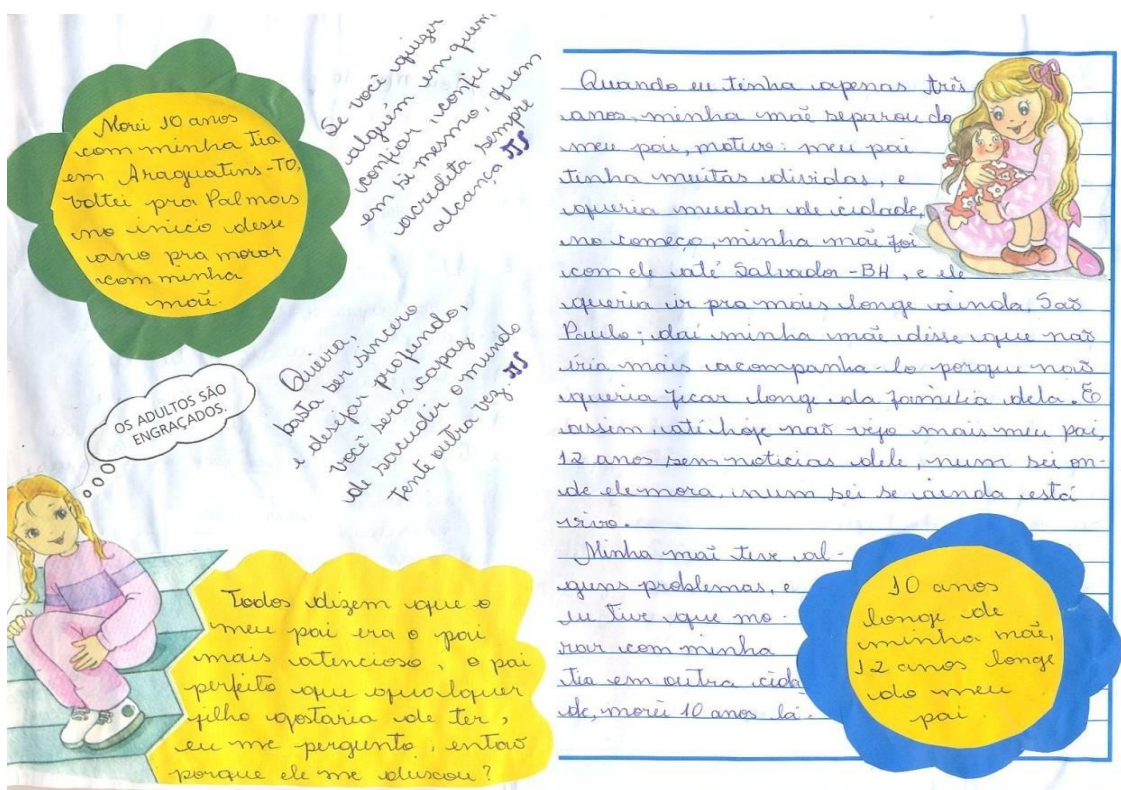 Morei 10 anos
com minha tia
em Araguatins-TO,
voltei pra Palmas
no início desse
ano pra morar
com minha
mãe.
Se você quizer
alguém em quem
confiar, confie
em si mesmo, quem
acredita sempre
alcança
Queira,
basta ser sincero
e desejar profundo,
você sera capaz
de sacudir o mundo
Tente outra vez.
OS ADULTOS SÃO
ENGRAÇADOS.
Todos dizem que o
meu pai era o pai
mais atencioso, o pai
perfeito que qualquer
filho gostaria de ter,
eu me pergunto, então
porque ele me
Quando eu tinha apenas três
anos, minha mãe separou do
meu pai, motivo: meu pai
tinha muitas dividas, e
queria mudar de cidade,
no começo, minha mãe foi
com ele até Salvador-BH, e ele
queria ir pra mais longe ainda, São
Paulo; daí minha mãe disse que não
iria mais acompanha-lo porque não
queria ficar longe da família dela. E
assim até hoje não vejo mais meu pai,
12 anos sem noticias dele, num sei on-
de ele mora, num sei se ainda está
vivo.
Minha mãe teve al-
guns problemas, e
eu tive que mo-
rar com minha
tia em outra cida
de, morei 10 anos lá.
10 anos
longe de
minha mãe,
12 anos longe
do meu
pai